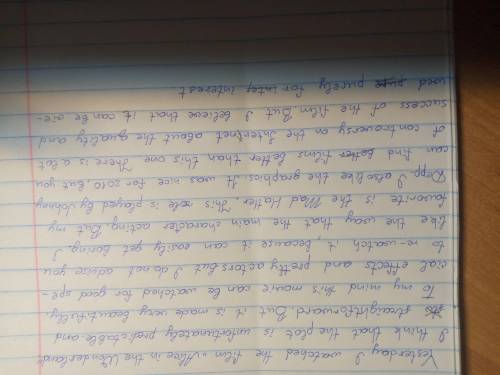 Yesterday I watched the film "Alice in the Wonderland".
I think that the plot is unfortunately predictable and
straightforward. But, it is made very beautifully.
To my mind this mourie can be watched for good spe-
cial effects and pretty actors. But I do not advice you
to re-watch it because it can easily get boring. I
like the way that the main character acting. But my
favorite is the Mad Hatter. This role is played by Johnny
Depp. I also like the graphics. It was nice for 2010. But you
can find better films better than this one. There is a lot
of controversy on the Intertnet about the quality and
success of the film. But I believe that it can be we-
used purely for interest.